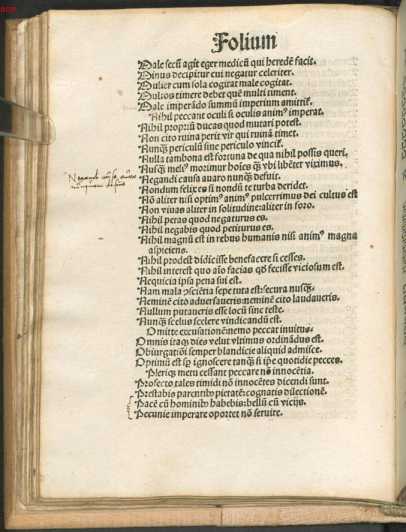 Folium
Male secũ agit eger medicũ qui heredẽ facit.
Minus decipitur cui negatur celeriter.
Mulier cum sola cogitat male cogitat.
Multos timere debet quẽ multi timent.
Male imperãdo summũ imperium amittit̃.
Nihil peccant oculi si oculis animꝰ imperat.
Nihil propriũ ducas quod mutari potest.
Non cito ruina perit vir qui ruinã timet.
Nunq̃ periculũ sine periculo vincit̃.
Nulla tam bona est fortuna de qua nihil possis queri.
Nusq̃ meliꝰ morimur hoĩes q̃ vbi libẽter viximus.
Negandi causa auaro nunq̃ defuit.
Nondum felix es si nondũ te turba deridet.
Nõ aliter nisi optimꝰ animꝰ pulcerrimus dei cultus est
Non viuas aliter in solitudine: aliter in foro.
Nihil petas quod negaturus es.
Nihil negabis quod petiturus es.
Nihil magnũ est in rebus humanis nisi animꝰ magna
aspiciens.
Nihil prodest didicisse benefacere si cesses.
Nihil interest quo aĩo facias qd̃ fecisse viciosum est.
Nequicia ipsa pena sui est.
Nam mala ↄsciẽtia sepe tuta est: secura nusq̃.
Neminẽ cito aduersaueris neminẽ cito laudaueris.
Nullum putaueris esse locũ sine teste.
Nunq̃ scelus scelere vindicandũ est.
Omitte excusationẽ nemo peccat inuitus.
Omnis itaq; dies velut vltimus ordinãdus est.
Obiurgatiõi semper blandicie aliquid admisce.
Optimũ est sp̃ ignoscere tanq̃ si ipse quotidie pecces.
Plericq; metu cessant peccare nõ innocẽtia.
Profecto tales timidi nõ innocẽtes dicendi sunt.
Prestabis parentibꝰ pietatẽ: cognatis dilectionẽ.
Pacẽ cũ hominibꝰ habebis: bellũ cũ vicijs.
Pecunie imperare oportet nõ seruire.